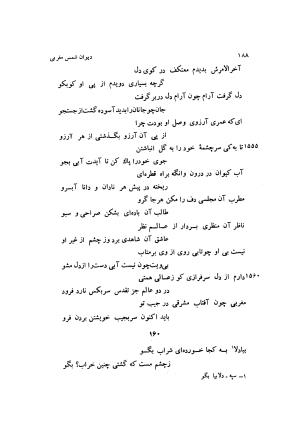 ۱۸۸
دیوان شمس مغربی
آخرالامرش بدیدم معتکف در کوی دل
گرچه بسیاری دویدم از پی او کوبکو
دل گرفت آرام چون آرام دل در بر گرفت
جان چو جانان را بدید آسوده گشت از جستجو
ای که عمری آرزوی وصل او بودت چرا
از پی آن آرزو بگذشتی از هر آرزو
۱۵۵۵ تا به کی سرچشمهٔ خود را به گل انباشتن
جوی خود را پاک کن تا آیدت آبی بجو
آب کیوان در درون وانگه براه قطره‌ای
ریخته در پیش هر نادان و دانا آبرو
مطرب آن مجلسی دف را مکن هر جا گرو
طالب آن باده‌ای بشکن صراحی و سبو
ناظر آن منظری بردار از عالم نظر
عاشق آن شاهدی بردوز چشم از غیر او
نیست بی او چو تابی روی از وی برمتاب
بی‌ویت چون نیست آبی دست را از دل مشو
۱۵۶۰ دارم از دل سرفرازی کو ز عالی همتی
در دو عالم جز تقدس سر بکس نارد فرود
مغربی چون آفتاب مشرقی در جیب تو
باید اکنون سر بجیب خویشتن بردن فرو
۱۶۰
بیا دلا به کجا خورده‌ای شراب بگو
ز چشم مست که گشتی چنین خراب؟ بگو
۱- سپه - دلا بیا بگو